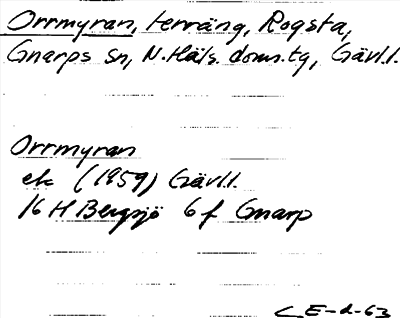 Orrmyran, terräng, Rogsta,
Gnarps sn, N. Häls. doms.tg, Gävl.l.
Orrmyran
ek (1959) Gävl.l.
16 H Bergsjö 6 f Gnarp
E-d-63